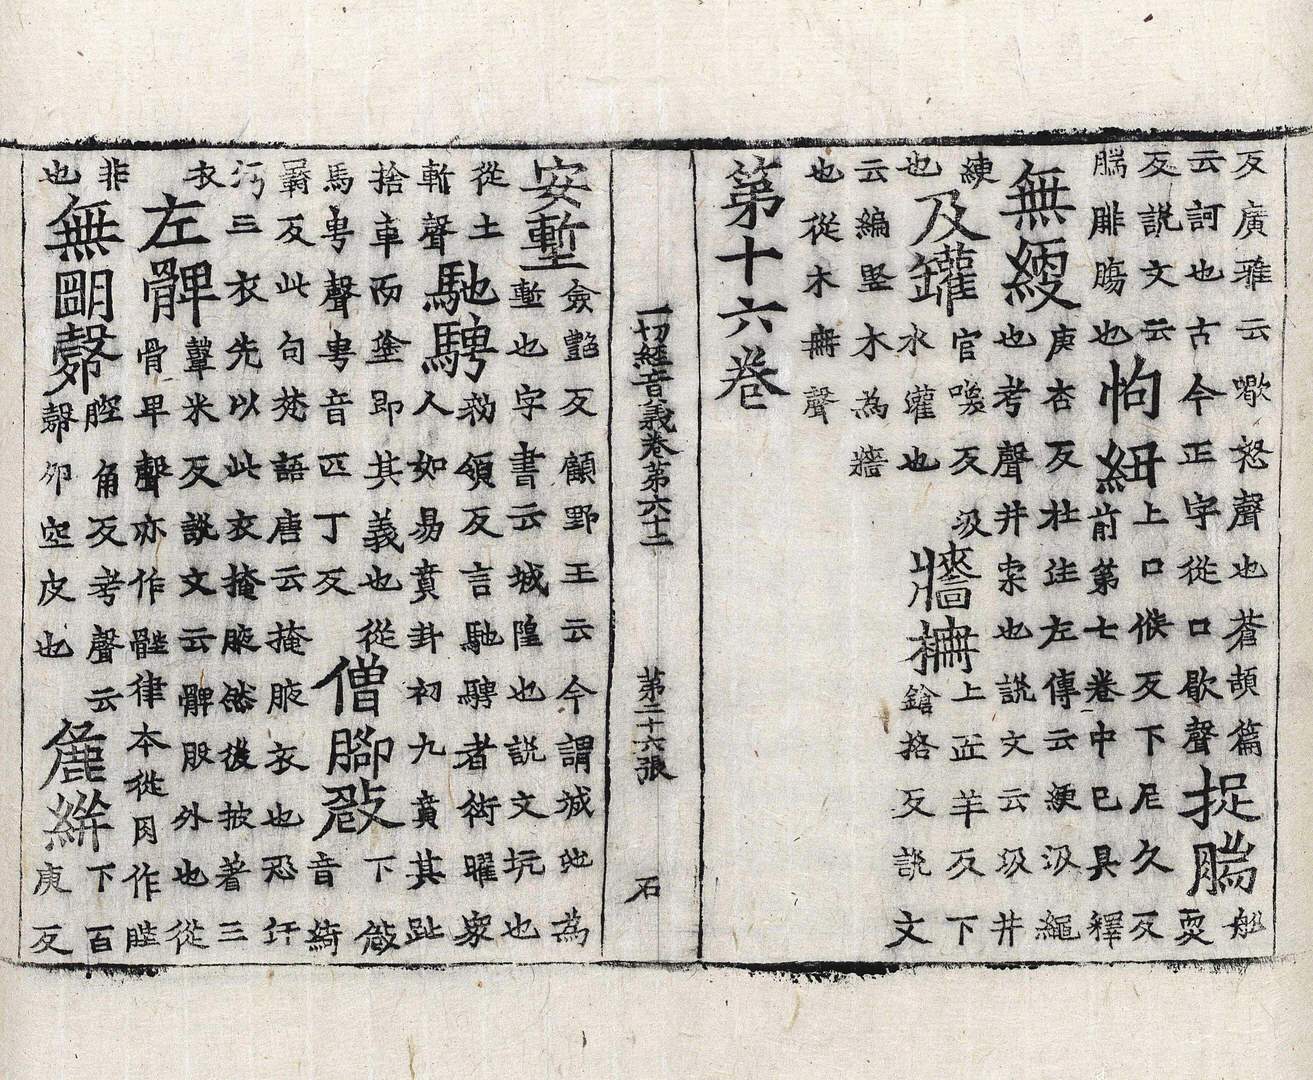 反廣雅云噷怒聲也蒼頡篇云訶也古今正字從口歇聲捉腨船耎
反說文云腨腓腸也怐紐上口候反下尼久反前第七卷中已具釋
無綆庚杏反杜注左傳云綆汲繩也考聲井索也說文云汲井
綆也及罐官喚反汲水灌也牆橆上匠羊反下鎗挌反說文
云編竪木為牆也從木無聲
第十六卷
一切經音義卷第六十二 第二十六張 石
安塹僉艷反顧野王云今謂城池為塹也字書云城隍也說文坑也
從土斬聲馳騁勑領反言馳騁者街曜眾人如易賁卦初九賁其趾
捨車而塗即其義也從馬甹聲甹音匹丁反僧腳敧下敧音綺
羇反此句梵語唐云掩腋衣也恐汗污三衣先以此衣掩腋然後披著三
衣左髀鞞米反說文云髀股外也從骨卑聲亦作䏶律本從肉作䏶
非也無㲉腔角反考聲云㲉卵空皮也麁絣下百庚反